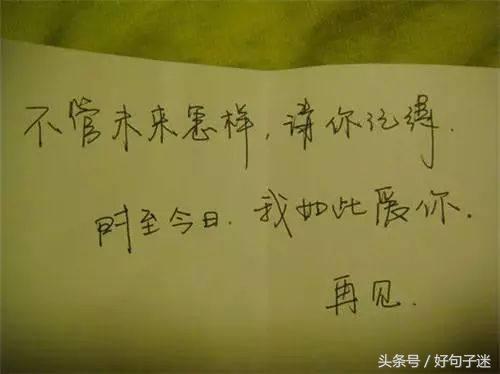 不管未来怎样，请你记得.
时至今日. 我如此爱你.
再见.
头条号／好句子迷